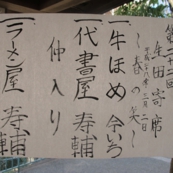 第二十二回
生田寄席
～春の笑～
平成二十八年三月二日
一、牛ほめ
一、代書屋 寿輔
仲入り
一、ラーメン屋 寿輔